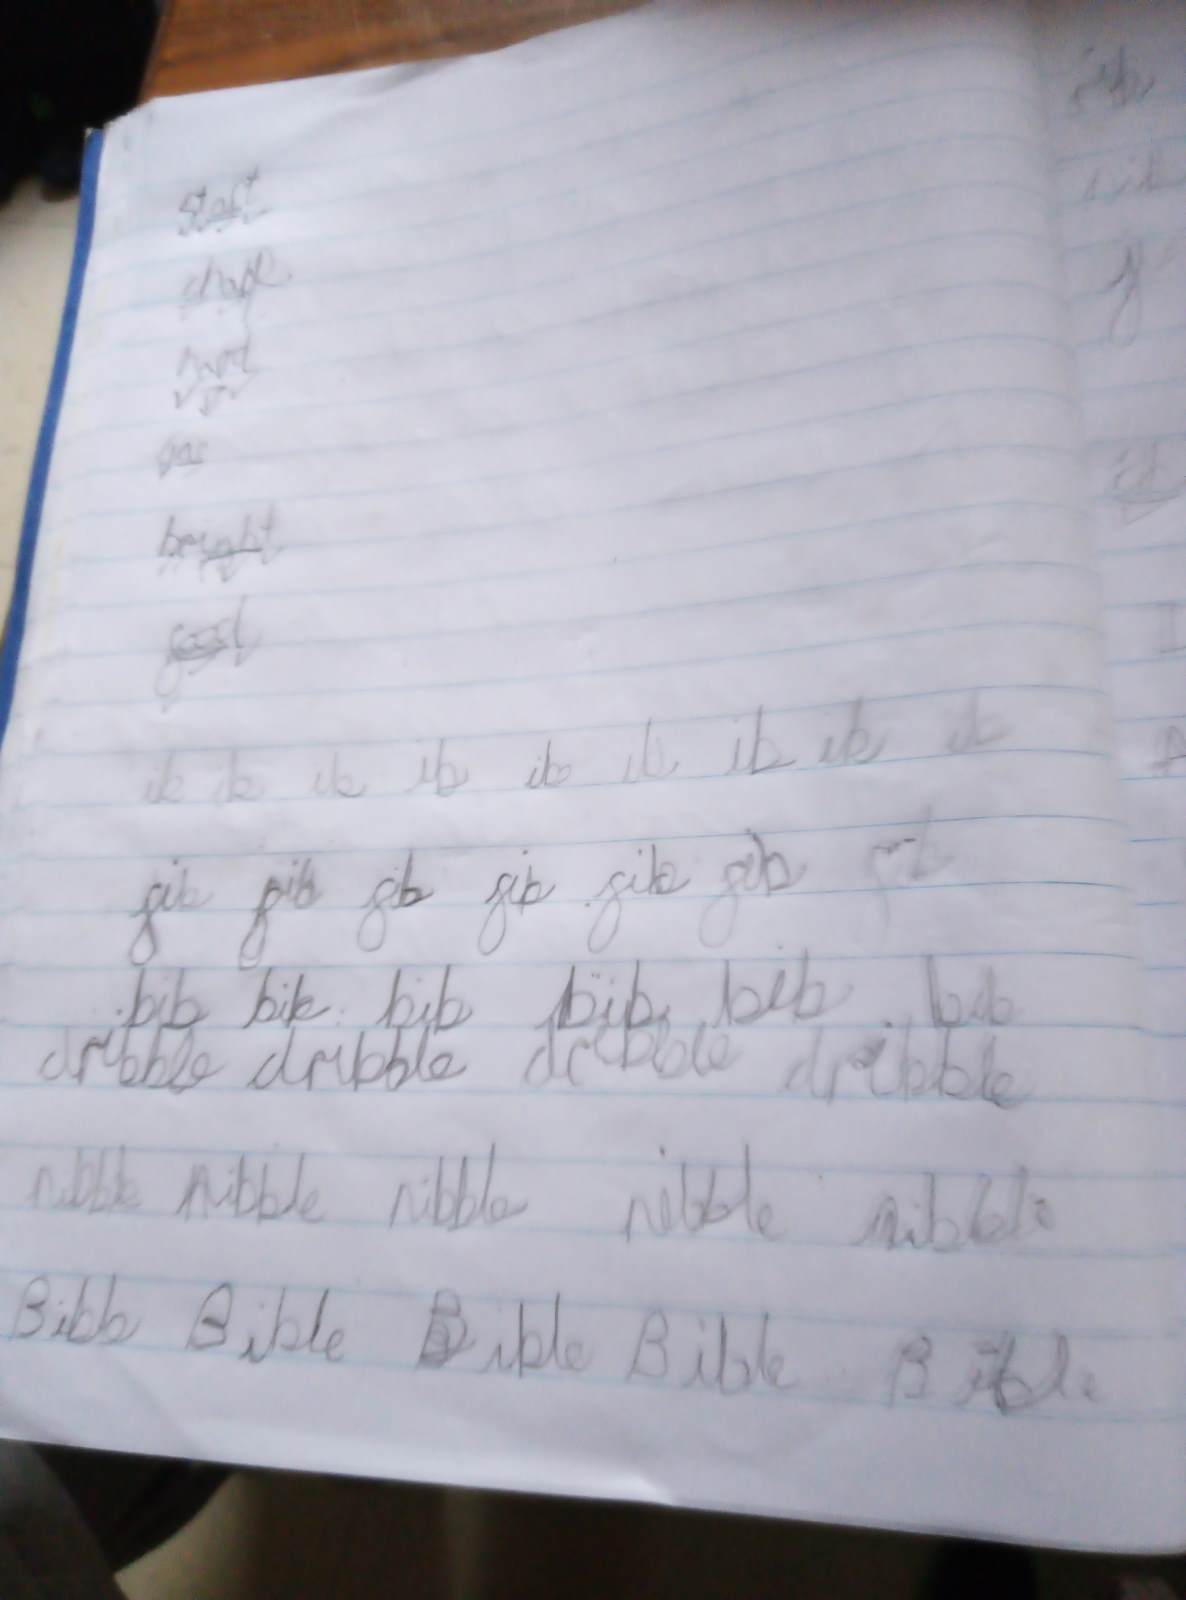 staft
chape
gas
bright
ib ib ib ib ib ib ib ib ib
gib gib gib gib gib gib gib
bib bib bib bib bib bib
dribble dribble dribble dribble
nibble nibble nibble nibble nibble
Bibb Bible Bible Bible Bible